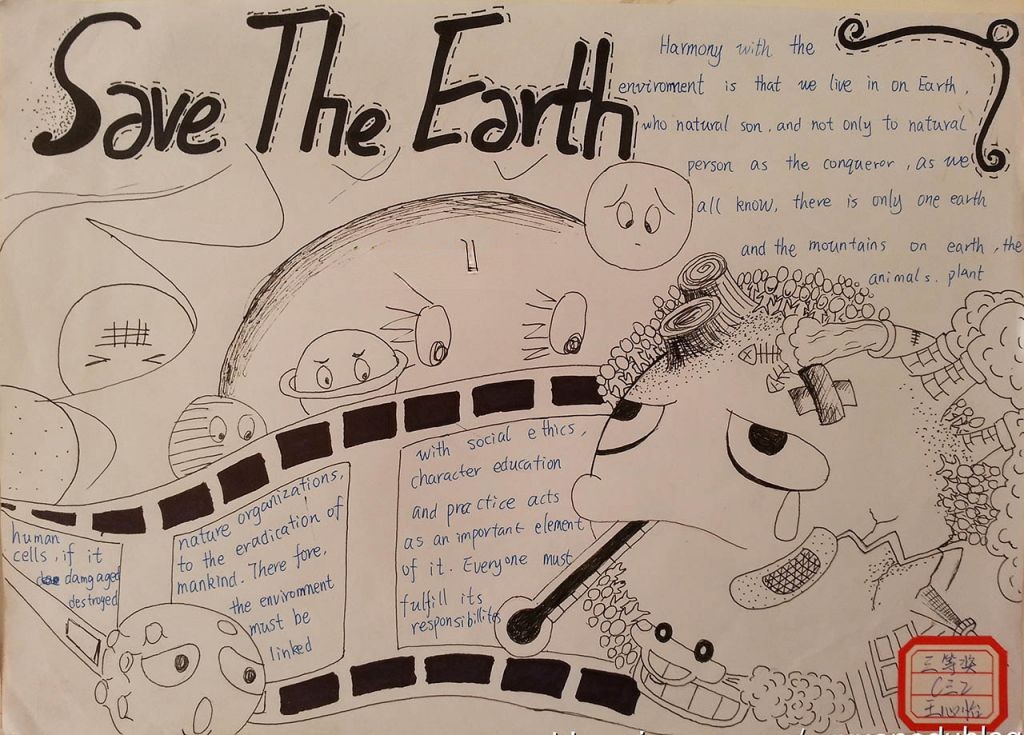 Save The Earth
Harmony with the
enviroment is that we live in on Earth,
who natural son, and not only to natural
person as the conqueror, as we
all know, there is only one earth
and the mountains on earth, the
animals. plant
human
cells, if it
damgaged
destroyed
nature organizations,
to the eradication of
mankind. There fore,
the enviroment
must be
linked
with social ethics,
character education
and practice acts
as an important element
of it. Everyone must
fulfill its
responsibilites
三等奖
C三2
王心怡